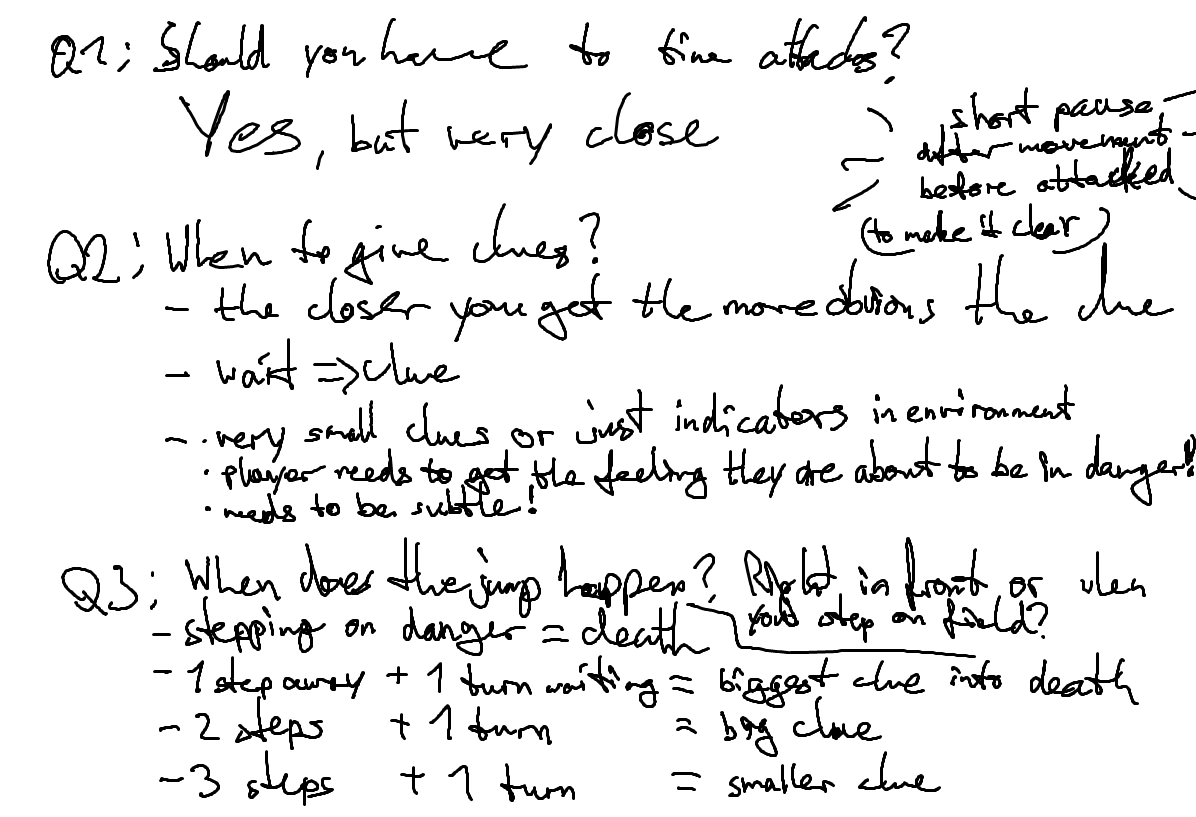 Q1: Should you have to time attacks?
Yes, but very close
short pause
after movement
before attacked
(to make it clear)
Q2: When to give clues?
- the closer you get the more obvious the clue
- wait => clue
- · very small clues or just indicators in environment
· player needs to get the feeling they are about to be in danger!
· needs to be subtle!
Q3: When does the jump happen? Right in front or when
you step on field?
- stepping on danger = death
- 1 step away + 1 turn waiting = biggest clue into death
- 2 steps + 1 turn = big clue
- 3 steps + 1 turn = smaller clue